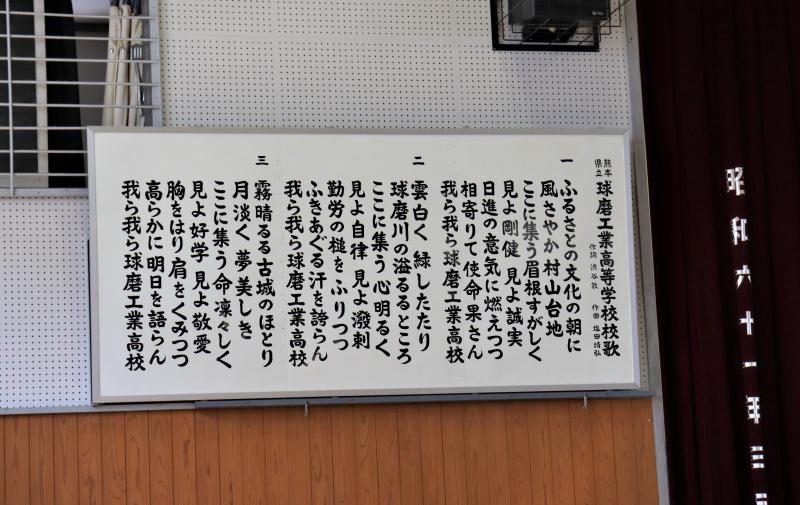 熊本県立 球磨工業高等学校校歌
作詞 渋谷敦 作曲 塩田靖弘
一 ふるさとの文化の朝に
風さやか 村山台地
ここに集う眉根すがしく
見よ 剛健 見よ誠実
日進の意気に燃えつつ
相寄りて使命果さん
我ら我ら球磨工業高校
二 雲白く 緑したたり
球磨川の溢るるところ
ここに集う 心明るく
見よ自律 見よ潑剌
勤労の槌をふりつつ
ふきあぐる汗を誇らん
我ら我ら球磨工業高校
三 霧晴るる古城のほとり
月淡く 夢美しき
ここに集う 命凜々しく
見よ好学 見よ敬愛
胸をはり肩をくみつつ
高らかに 明日を語らん
我ら我ら球磨工業高校
昭和六十一年三